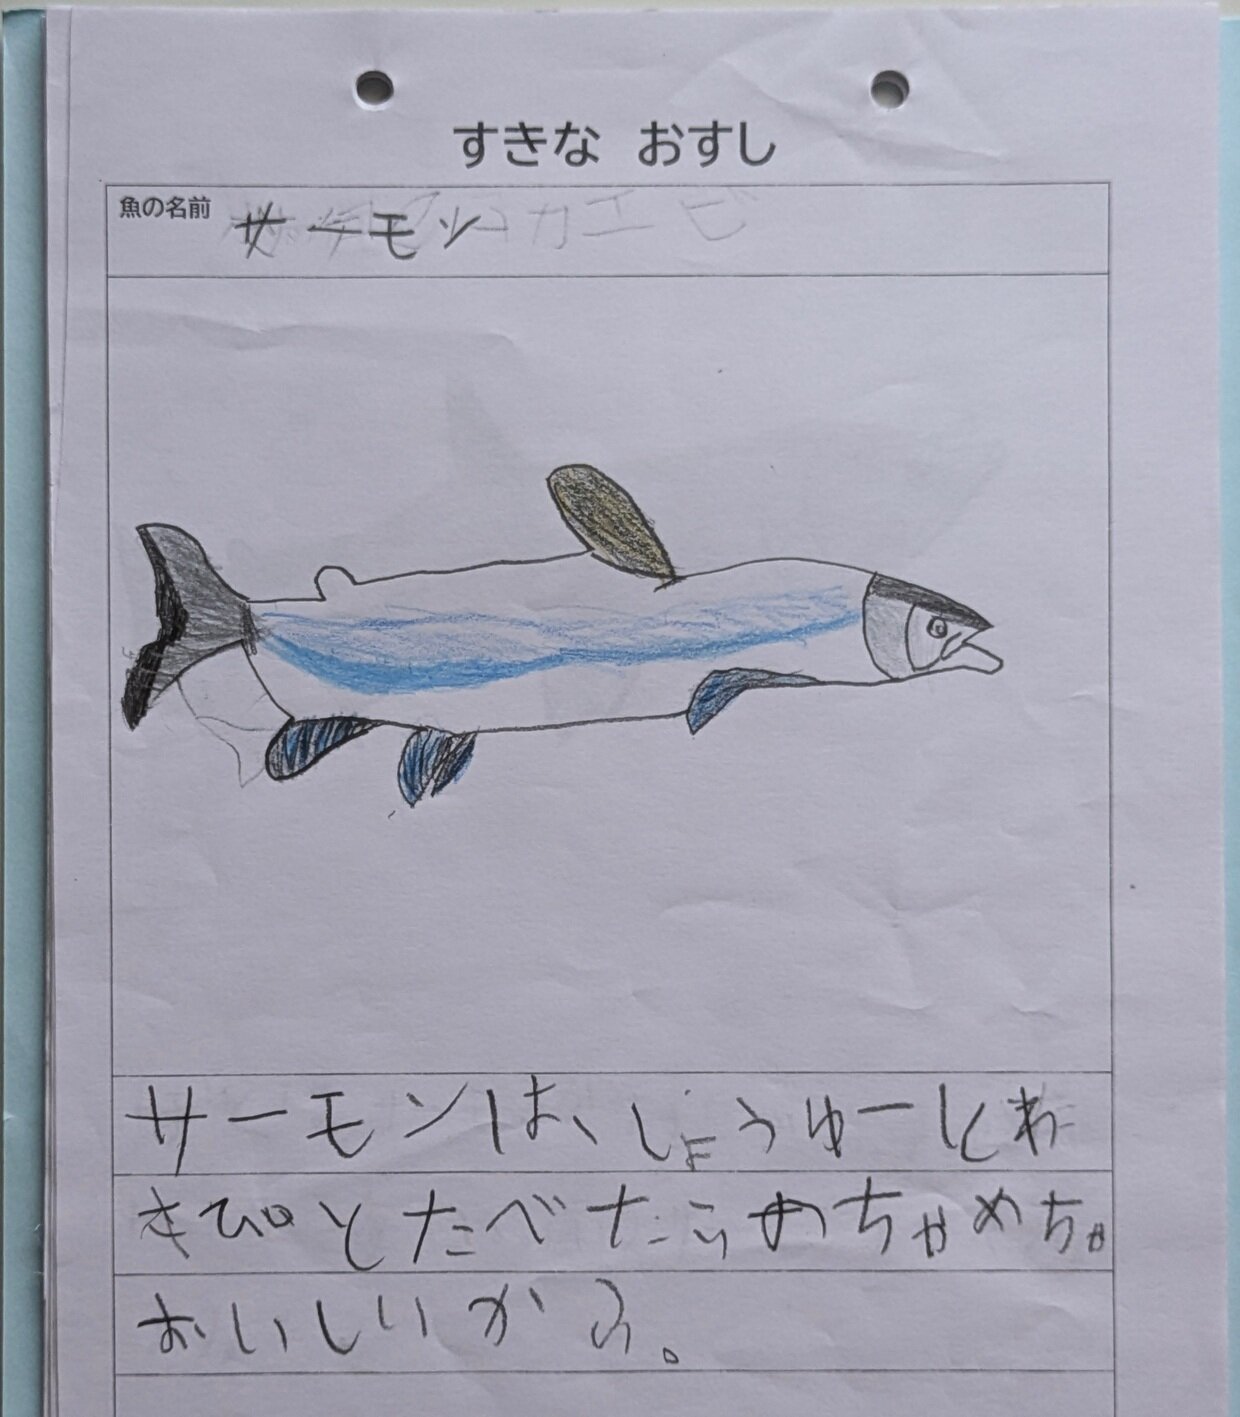 すきな おすし
魚の名前 サーモン
サーモンは、しょうゆーとわ
さぴとたべたらめちゃめちゃ
おいしいから。